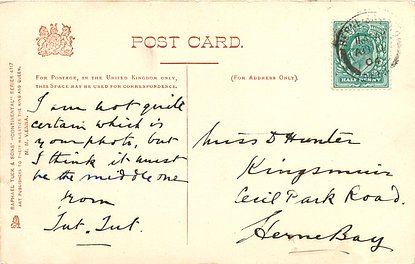 POST CARD.
FOR POSTAGE, IN THE UNITED KINGDOM ONLY,
THIS SPACE MAY BE USED FOR CORRESPONDENCE.
(FOR ADDRESS ONLY).
I am not quite
certain which is
your photo, but
I think it must
be the middle one
From
Tut. Tut.
Miss D Hunter
Kingsmuir
Cecil Park Road.
Herne Bay
HALF PENNY
RAPHAEL TUCK & SONS' "CONNOISSEUR" SERIES
ART PUBLISHERS TO THEIR MAJESTIES THE KING AND QUEEN.